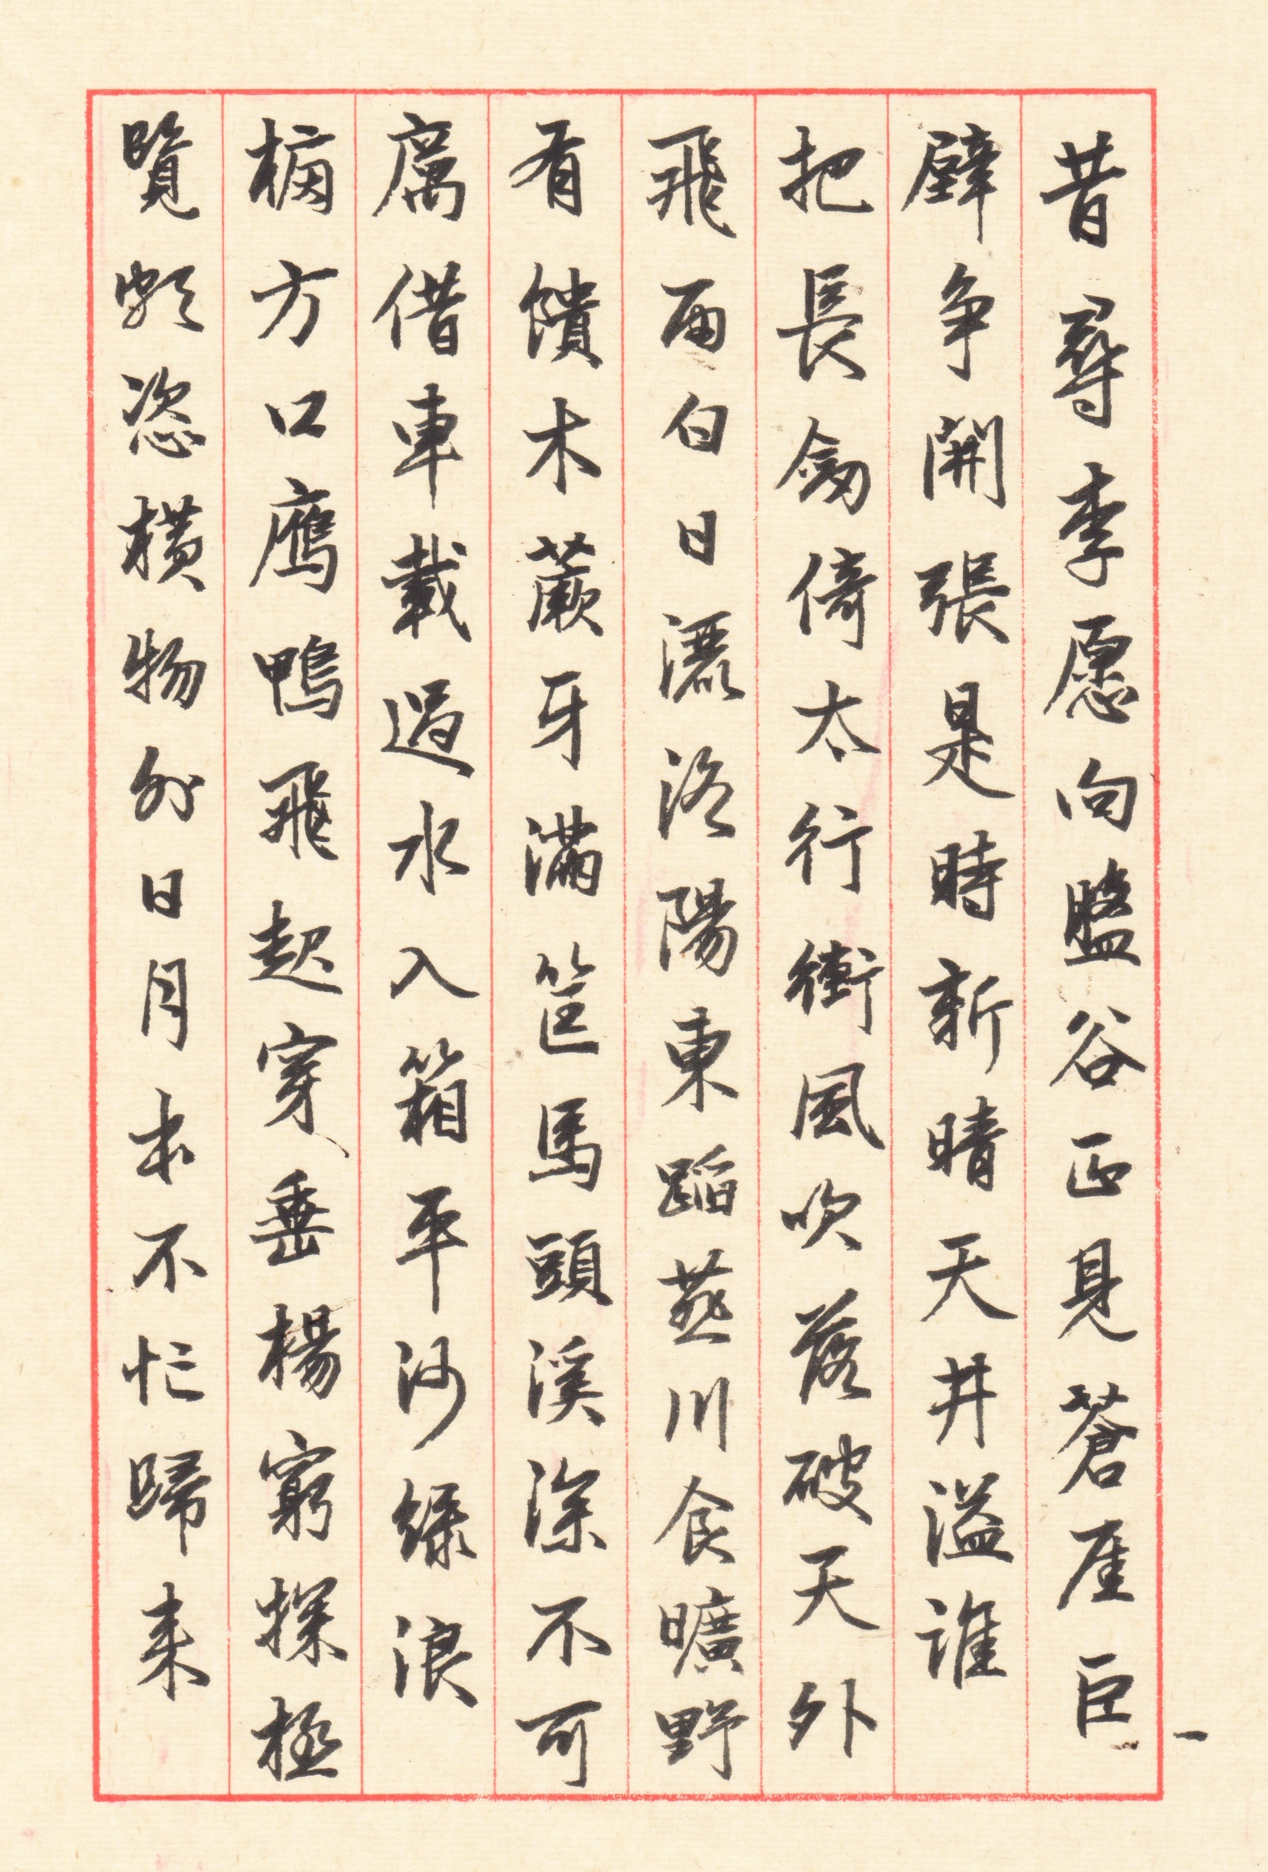 昔尋李愿向盤谷正見蒼崖巨
壁争開張是時新晴天井溢誰
把長劍倚太行衝風吹落破天外
飛雨白日灑洛陽東蹈燕川食曠野
有饋木蕨牙滿筐馬頭溪深不可
厲借車載過水入箱平沙綠浪
榜方口鴈鴨飛起穿垂楊窮探極
覽頗恣橫物外日月本不忙歸来
一